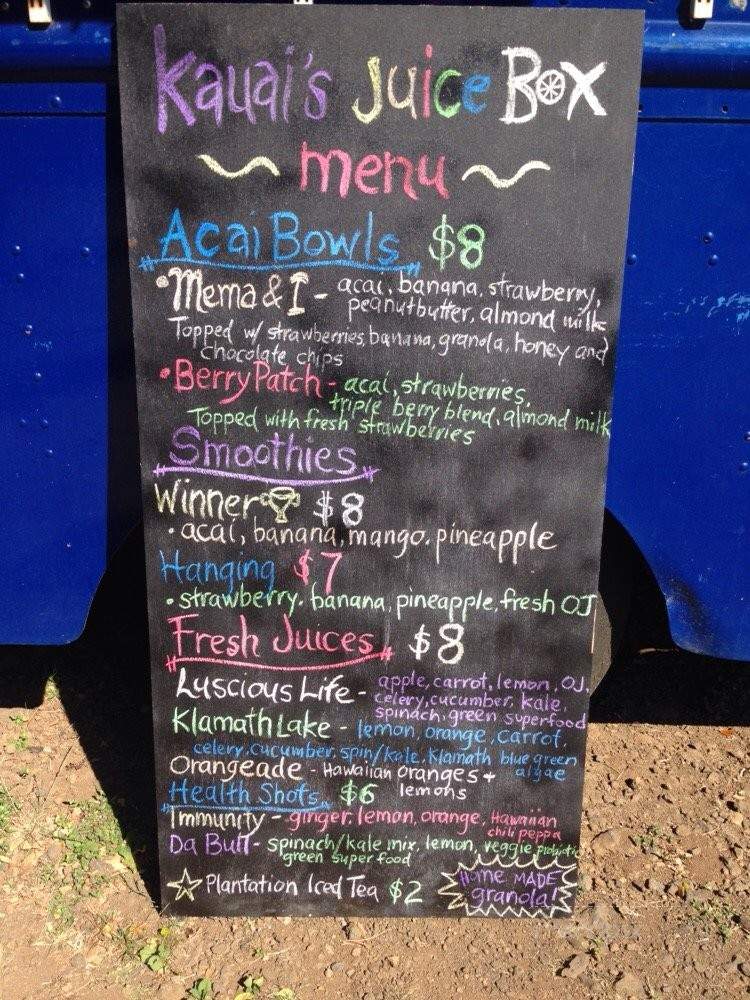 Kauai's Juice Box
menu
Acai Bowls $8
• Mema & I - acai, banana, strawberry,
peanutbutter, almond milk
Topped w/ strawberries, banana, granola, honey and
chocolate chips
• Berry Patch - acai, strawberries,
triple berry blend, almond milk
Topped with fresh strawberries
Smoothies
Winner $8
• acai, banana, mango, pineapple
Hanging $7
• strawberry, banana, pineapple, fresh OJ
Fresh Juices $8
Luscious Life - apple, carrot, lemon, OJ,
celery, cucumber, kale,
spinach, green superfood
Klamath Lake - lemon, orange, carrot,
celery, cucumber, spin/kale, Klamath blue green
algae
Orangeade - Hawaiian oranges +
lemons
Health Shots $6
Immunity - ginger, lemon, orange, Hawaiian
chili peppa
Da Buff - spinach/kale mix, lemon, veggie probiotic
green super food
☆ Plantation Iced Tea $2
Home MADE
granola!